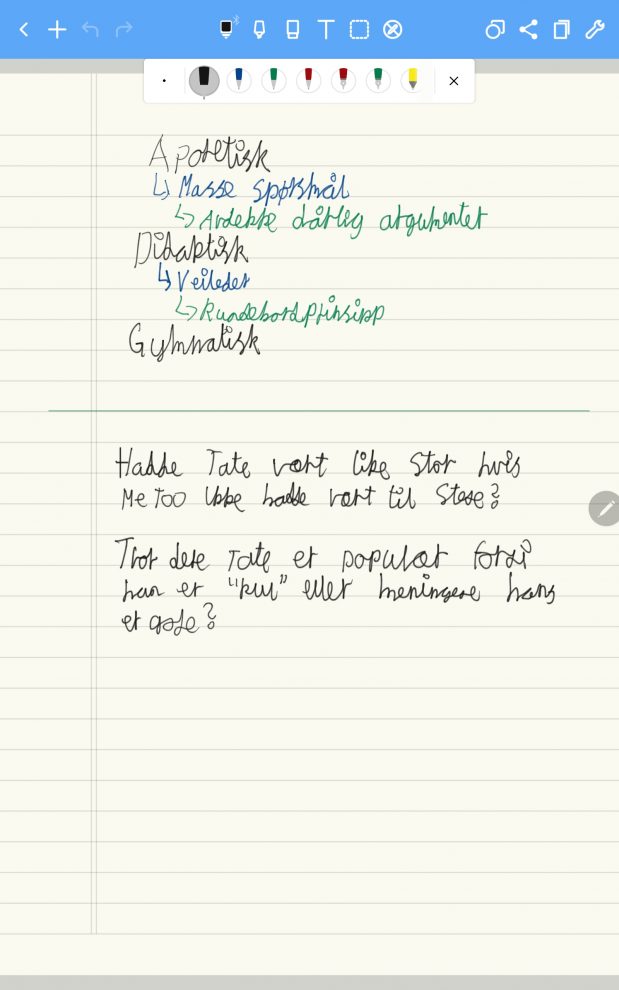 Aporetisk
↳ Masse spørsmål
↳ Avdekke dårlig argumenter
Didaktisk
↳ Veileder
↳ Rundebordprinsipp
Gymnatisk
Hadde Tate vært like stor hvis
MeToo ikke hadde vært til stede?
Tror dere Tate er populær fordi
han er "kul" eller meningene hans
er gode?